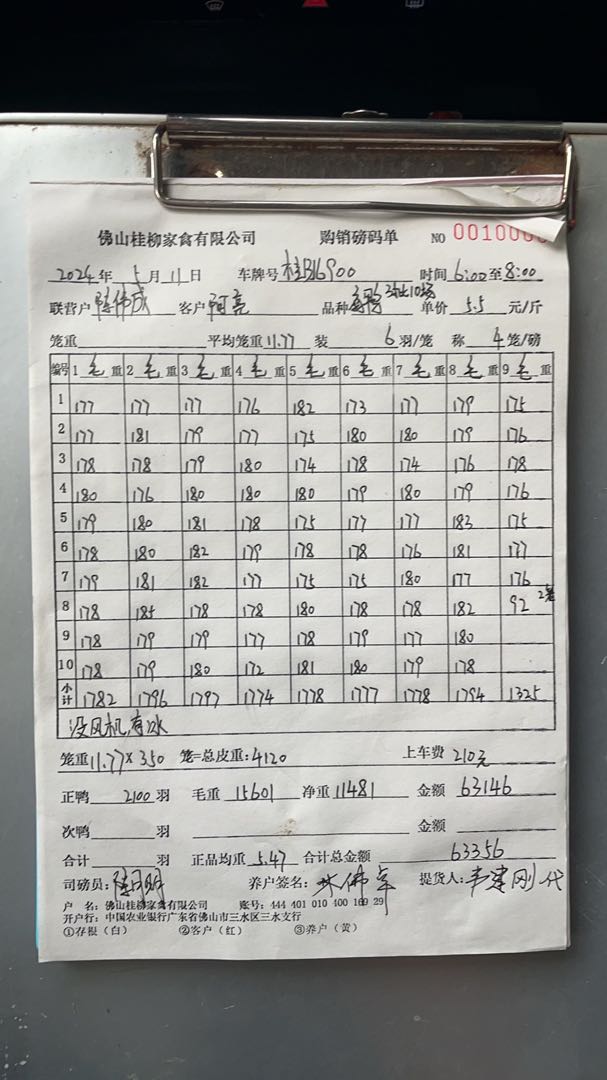 佛山桂柳家禽有限公司 购销磅码单 NO 001000
2024年5月11日 车牌号 桂B16900 时间 6:00至8:00
联营户 陈伟成 客户 阿亮 品种 单价 5.5 元/斤
笼重 平均笼重 11.77 装 6 羽/笼 称 4 笼/磅
编号 1 毛 重 2 毛 重 3 毛 重 4 毛 重 5 毛 重 6 毛 重 7 毛 重 8 毛 重 9 毛 重
1 177 177 177 176 182 173 177 179 175
2 177 181 179 177 175 180 180 179 176
3 178 178 179 180 174 178 174 176 178
4 180 176 180 180 180 179 180 179 176
5 179 180 181 178 175 177 177 183 175
6 178 180 182 179 178 178 176 181 177
7 179 181 182 177 175 175 180 177 176
8 178 185 178 178 180 178 178 182 92 2笼
9 178 179 179 177 178 179 177 180
10 178 179 180 172 181 180 179 178
小计 1782 1796 1797 1774 1778 1777 1778 1794 1325
没风机,有冰
笼重 11.77×350 笼=总皮重:4120 上车费 210元
正鸭 2100 羽 毛重 15601 净重 11481 金额 63146
次鸭 羽 金额
合计 羽 正品均重 5.47 合计总金额 63356
司磅员: 养户签名: 提货人: 代
户 名: 佛山桂柳家禽有限公司 账号: 444 401 010 400 169 29
开户行: 中国农业银行广东省佛山市三水区三水支行
①存根(白) ②客户(红) ③养户(黄)